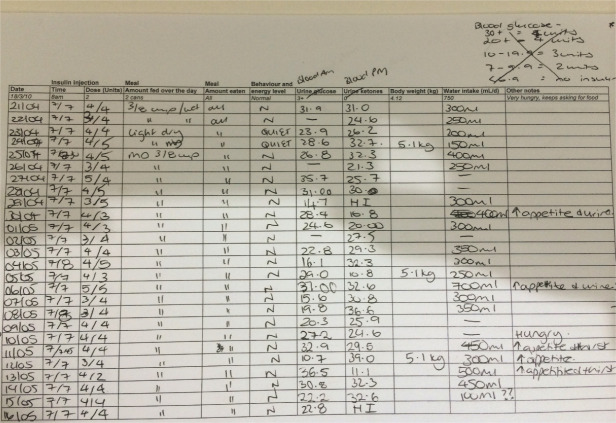 Blood glucose -
30+ = units
20+ = 4 units
10-19.9 = 3 units
7-9.9 = 2 units
= no insulin
Blood AM Blood PM
Insulin injection Meal Meal Behaviour and
Date Time Dose (Units) Amount fed over the day Amount eaten energy level Urine glucose Urine ketones Body weight (kg) Water intake (mL/d) Other notes
18/3/10 8am 2 2 cans All Normal 3+ 0 4.12 750 Very hungry, keeps asking for food
21/04 7/7 4/4 3/8 cup/wet all N 31.9 31.0 300ml
22/04 " 3/4 " all N — 24.6 250ml
23/04 7/7 4/4 light dry " QUIET 23.9 26.2 200ml
24/04 7/7 4/5 " " QUIET 28.6 32.7 5.1kg 150ml
25/04 4/5 mo 3/8 cup " N 26.8 32.3 400ml
26/04 7/7 3/4 " " N — 21.3 250ml
27/04 7/7 5/4 " " N 35.7 25.7 —
28/04 7/7 4/5 " " N 31.00 —
29/04 7/7 3/5 " " N 14.7 HI 300ml
30/04 7/7 4/3 " " N 28.4 10.8 400ml ↑appetite
01/05 7/7 4/3 " " N 24.6 20.00 300ml
02/05 7/7 3/4 " " N — 27.5 —
03/05 7/7 4/4 " " N 22.8 29.3 350ml
04/05 7/8 4/5 " " N 16.1 32.3 300ml
05/05 7/7 4/3 " " N 29.0 10.8 5.1kg 250ml
06/05 7/7 5/5 " " N 31.00 32.6 700ml ↑appetite & urine
07/05 7/7 3/4 " " N 15.6 30.8 300ml
08/05 3/4 " " N 19.8 36.6 350ml
09/05 7/7 4/4 " " N 20.3 25.9 —
10/05 7/7 4/4 " " N 27.2 24.6 — Hungry.
11/05 4/4 " " N 32.9 29.5 450ml ↑appetite & thirst
12/05 7/7 3/4 " " N 10.7 39.0 5.1kg 300ml ↑appetite.
13/05 7/7 4/2 " " N 36.5 11.1 500ml ↑appetite & thirst
14/05 7/7 4/4 " " N 30.8 32.3 450ml
15/05 7/7 4/4 " " N 22.2 32.6 100ml ??
16/05 7/7 4/4 " " N 22.8 HI